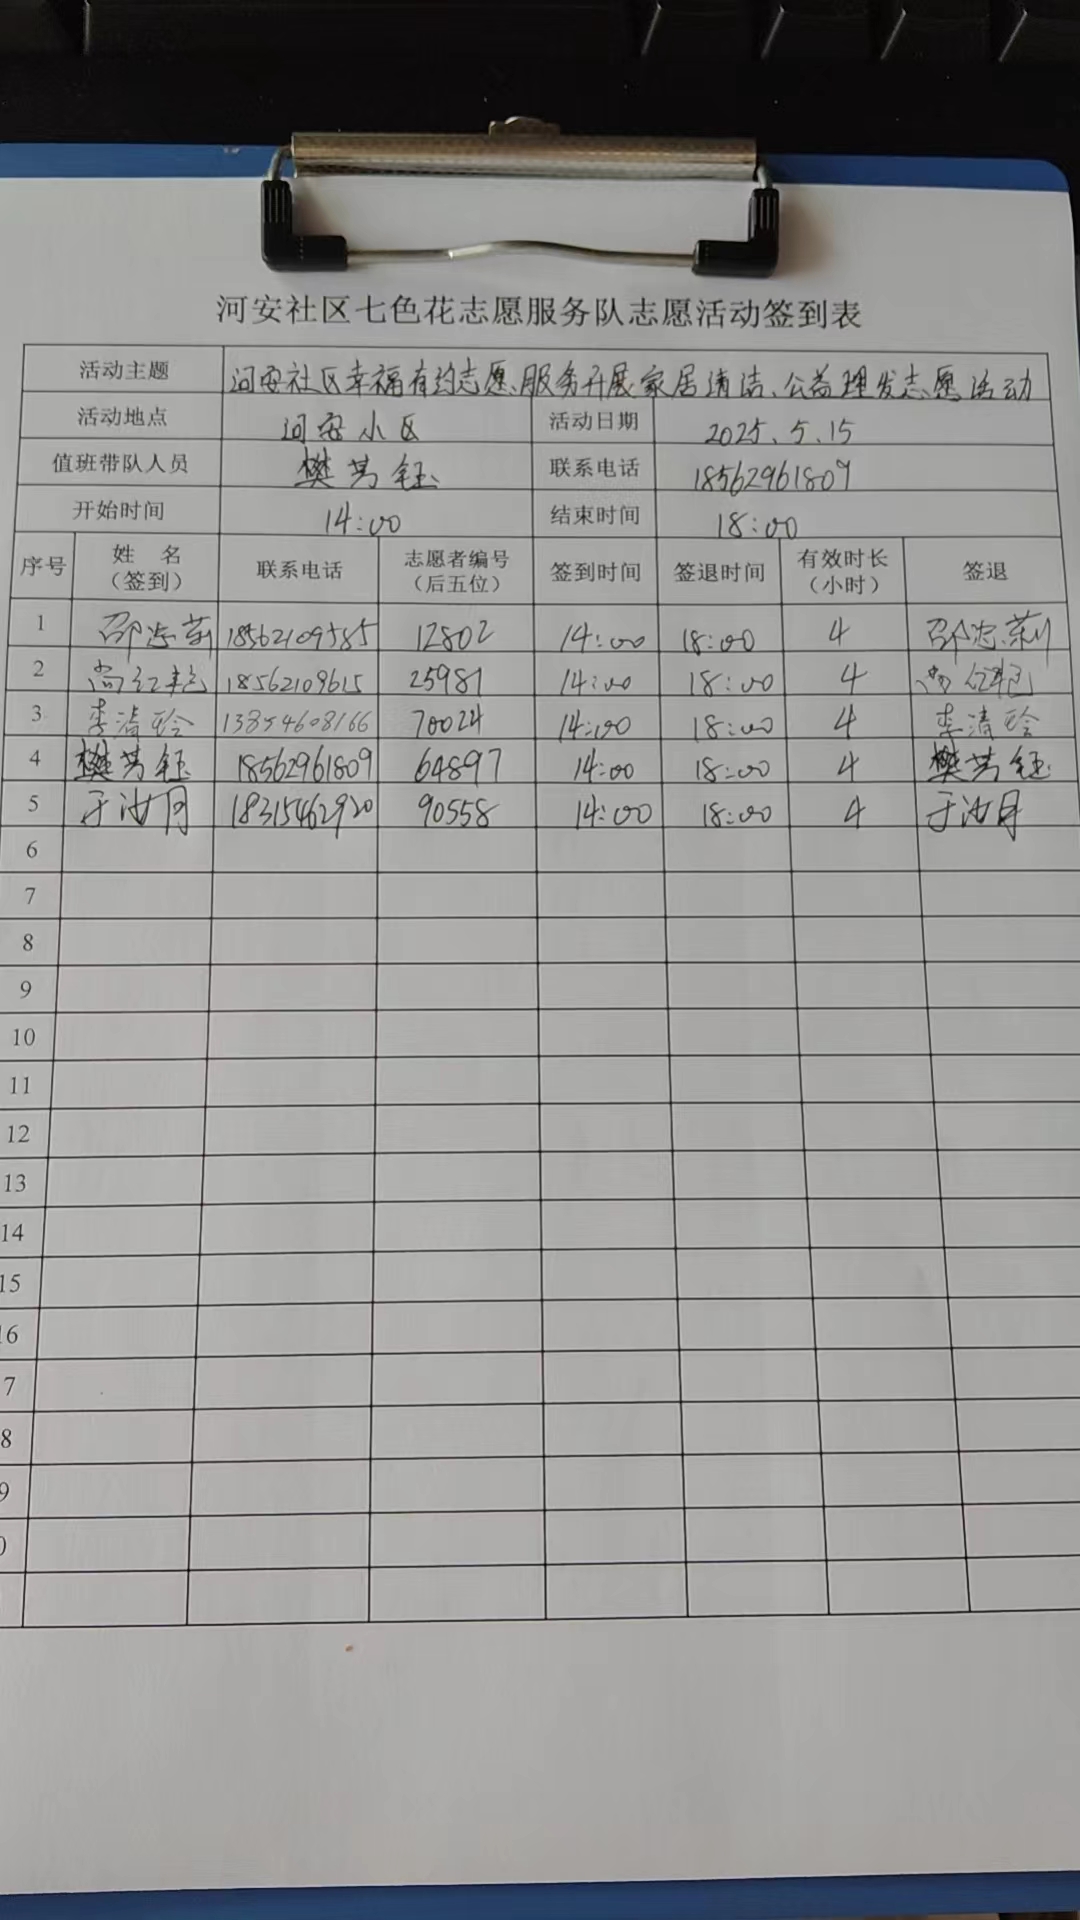 河安社区七色花志愿服务队志愿活动签到表
活动主题 河安社区幸福有约志愿服务开展家居清洁、公益理发志愿活动
活动地点 河安小区 活动日期 2025.5.15
值班带队人员 樊芳钰 联系电话 18562961809
开始时间 14:00 结束时间 18:00
序号 姓 名（签到） 联系电话 志愿者编号（后五位） 签到时间 签退时间 有效时长（小时） 签退
1 邵忠莉 18562109585 12802 14:00 18:00 4 邵忠莉
2 尚红艳 18562109615 25981 14:00 18:00 4 尚红艳
3 李清玲 13854608166 70024 14:00 18:00 4 李清玲
4 樊芳钰 18562961809 64897 14:00 18:00 4 樊芳钰
5 于汝月 18315462920 90558 14:00 18:00 4 于汝月
6
7
8
9
10
11
12
13
14
15
16
7
8
9
0